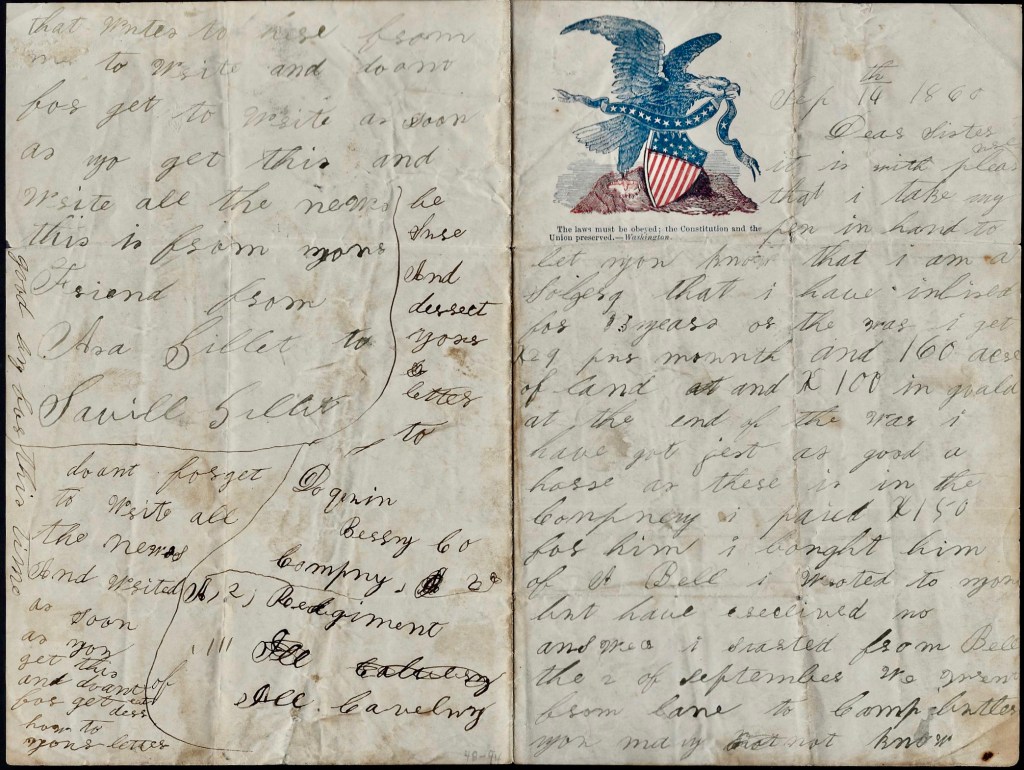 Sep 14th 1860
Dear Sister
it is with pleas
that i take my
pen in hand to
let you know that i am a
that i have inlised
for 3 years or the war i get
per mounth and 160 acre
of land at and X 100 in goald
at the end of the war i
have got jest as good a
horse as there is in the
Compnery i paied X150
for him i bought him
of A Bell i wroted to you
but have received no
i started from Bell
the 2 of september We went
from lane to Camp buttler
you may not know
The laws must be obeyed; the Constitution and the
Union preserved.—Washington.
that writes to here from
me to write and doant
for get to write as soon
as yo get this and
write all the news
this is from yours
Friend from
Asa Gillet to
Savill Gillet
good by for this time
be
sure
And
derect
yore
letter
to
doant forget
to write all
the news
And writed
as soon
as you
get this
and doant
for get
how to
yours letter
Doqwin
Berry Co
Compny, 28
A, 2, Redgiment
111
of Ill. Cavelry
48-94